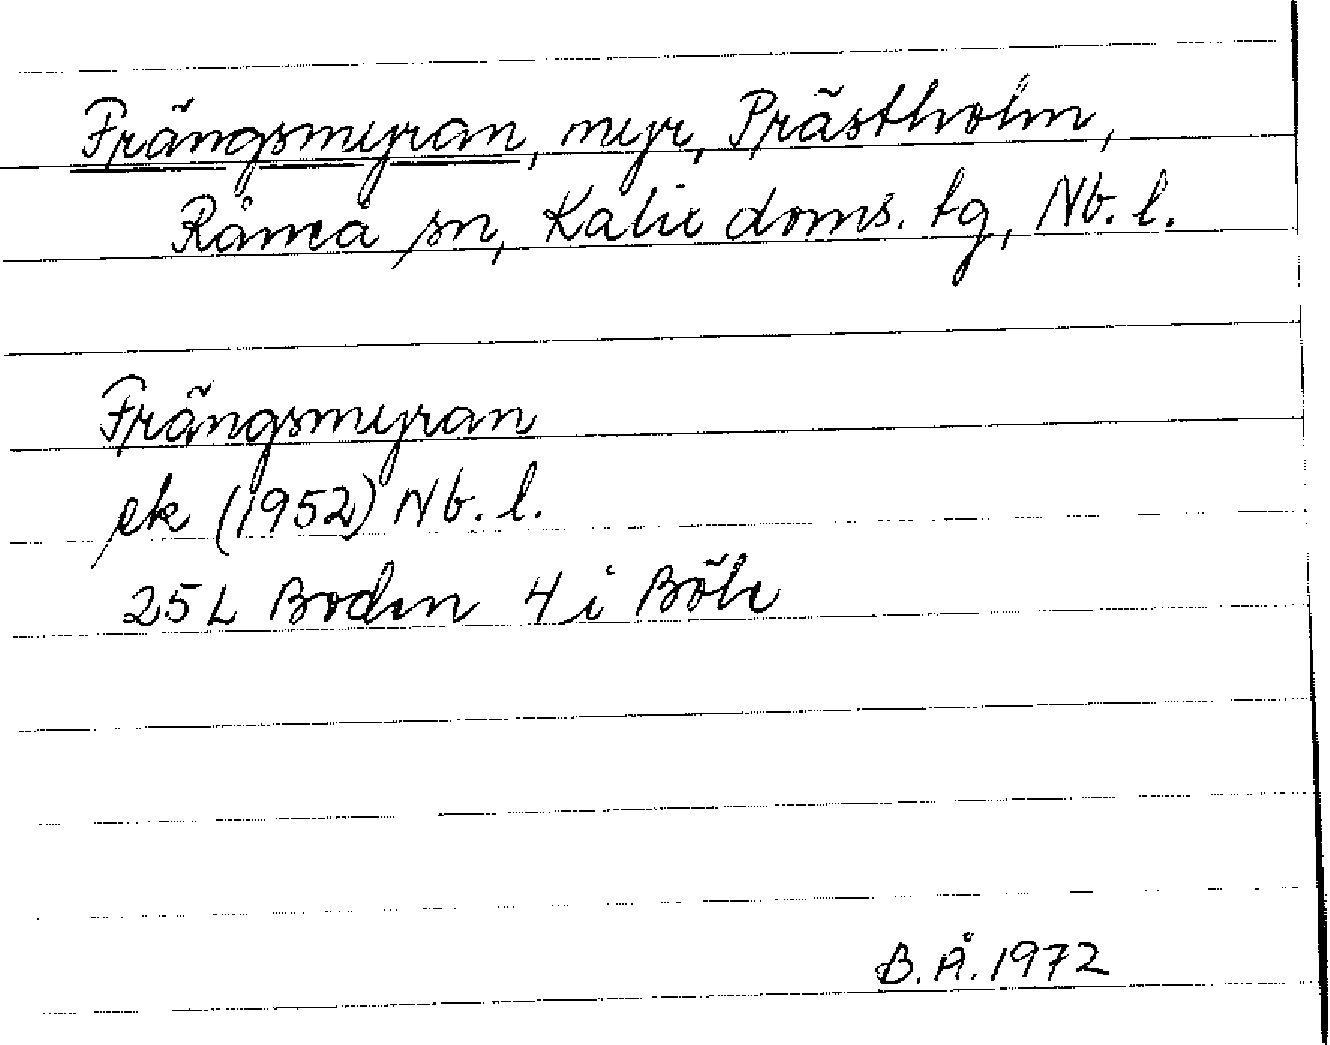 Frängsmyran, myr, Prästholm,
Råneå sn, Kalix doms. tg, Nb. l.
Frängsmyran
ek (1952) Nb. l.
25 L Boden 4 i Böle
B. Å. 1972